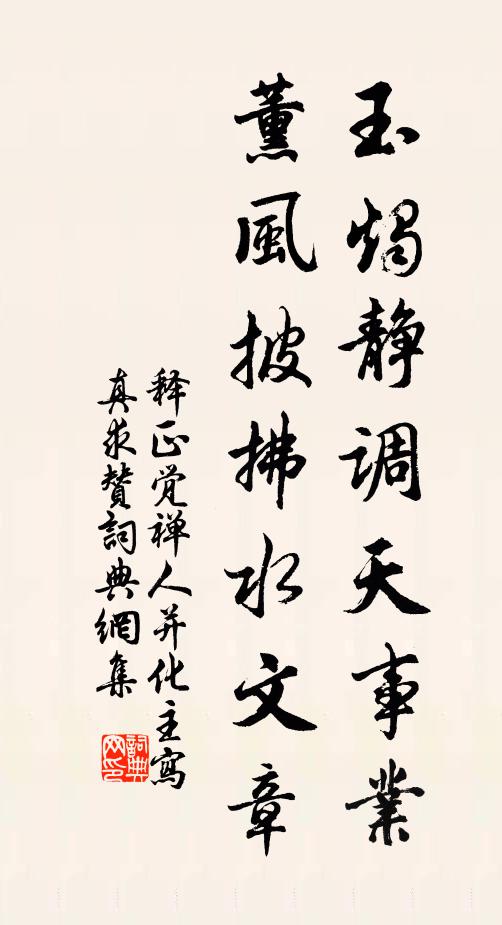 玉烛静调天事業
薰風披拂水文章
释正觉禅人并化主寫
真求贊詞典網集
詞典網印